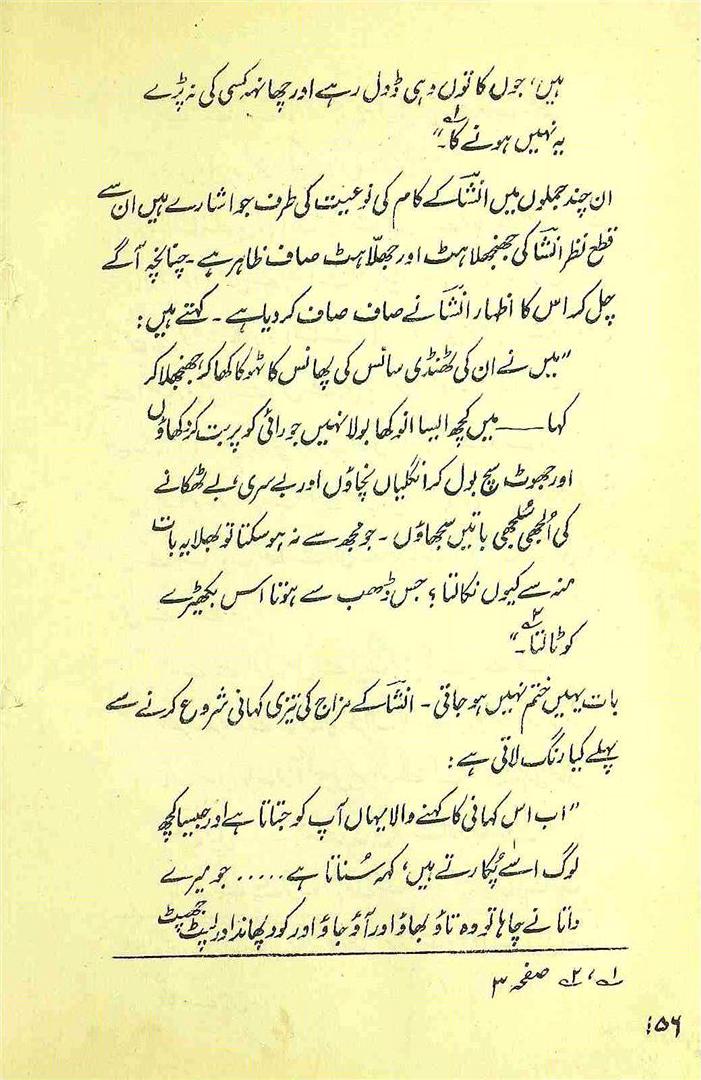 ہیں، جوں کا توں وہی ڈول رہے اور چھانہہ کسی کی نہ پڑے
یہ نہیں ہونے کا۔۱؎"
ان چند جملوں میں انشاؔ کے کام کی نوعیت کی طرف جو اشارے ہیں ان سے
قطع نظر انشاؔ کی جھنجھلاہٹ اور جھلّاہٹ صاف ظاہر ہے۔ چنانچہ آگے
چل کر اس کا اظہار انشاؔ نے صاف صاف کر دیا ہے۔ کہتے ہیں:
"میں نے ان کی ٹھنڈی سانس کی پھانس کا ٹہوکا کھا کر، جھنجھلا کر
کہا —— میں کچھ ایسا انوکھا بولا نہیں جو رائی کو پربت کر دکھاؤں
اور جھوٹ سچ بول کر انگلیاں نچاؤں اور بے سری، بے ٹھکانے
کی اُلجھی سُلجھی باتیں سجھاؤں۔ جو مجھ سے نہ ہو سکتا تو بھلا یہ بات
منہ سے کیوں نکالتا؟ جس ڈھب سے ہوتا اس بکھیڑے
کو ٹالتا۔۲؎"
بات یہیں ختم نہیں ہو جاتی۔ انشاؔ کے مزاج کی تیزی کہانی شروع کرنے سے
پہلے کیا رنگ لاتی ہے:
"اب اس کہانی کا کہنے والا یہاں آپ کو جتاتا ہے اور جیسا کچھ
لوگ اسے پُکارتے ہیں، کہہ سُناتا ہے ..... جو میرے
داتا نے چاہا تو وہ تاؤ بھاؤ اور آؤ جاؤ اور کود پھاند اور لپٹ جھپٹ
۱؎، ۲؎ صفحہ ۳
۱۵۶